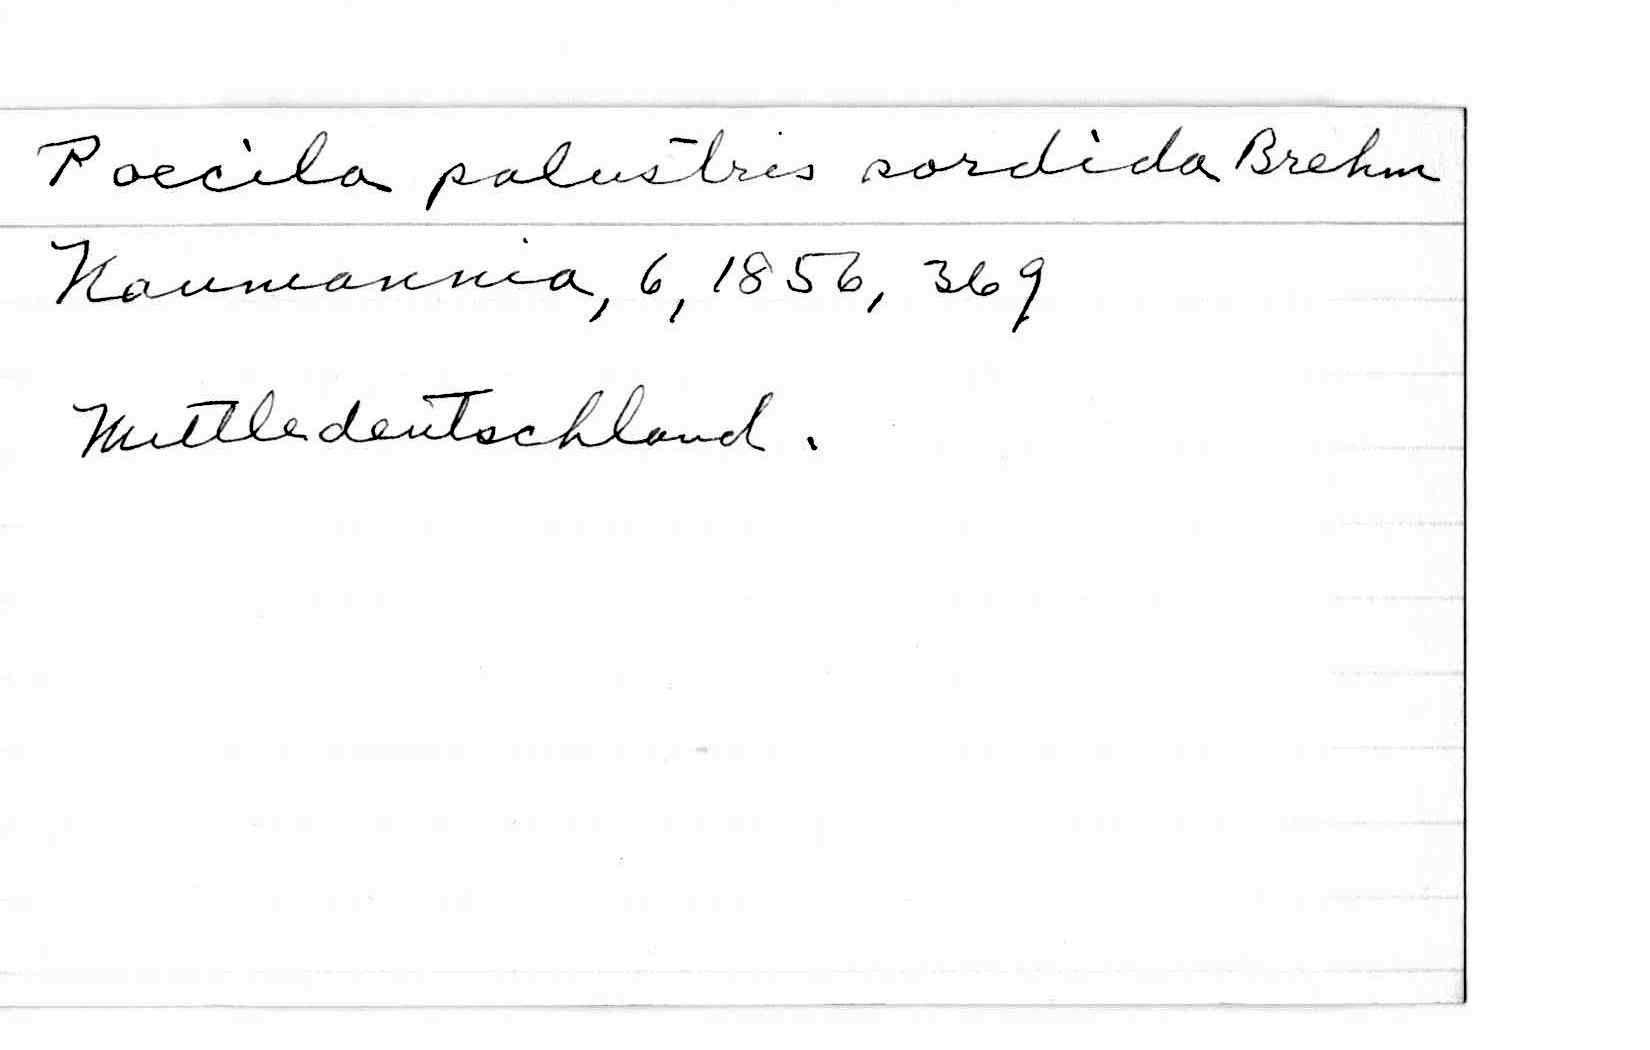 Poecila palustris sordida Brehm
Naumannia, 6, 1856, 369
Mittledeutschland.